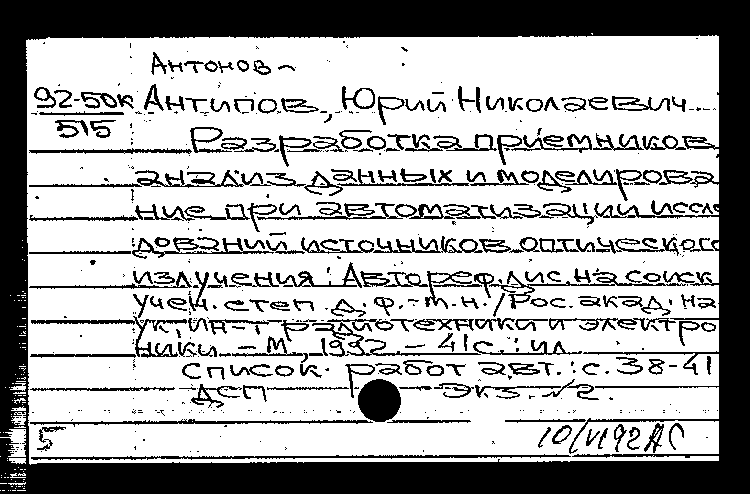 Антонов-
92-50к Антипов, Юрий Николаевич
515
Разработка приемников,
анализ данных и моделирова
ние при автоматизации иссле
дований источников оптического
излучения: Автореф. дис. на соиск
учен. степ. д. ф.-т. н. / Рос. акад. на
ук, ин-т радиотехники и электро
ники - М, 1992. - 41 с. : ил
список работ авт.: с. 38-41
ДСП Экз. №2.
5 10/VI92